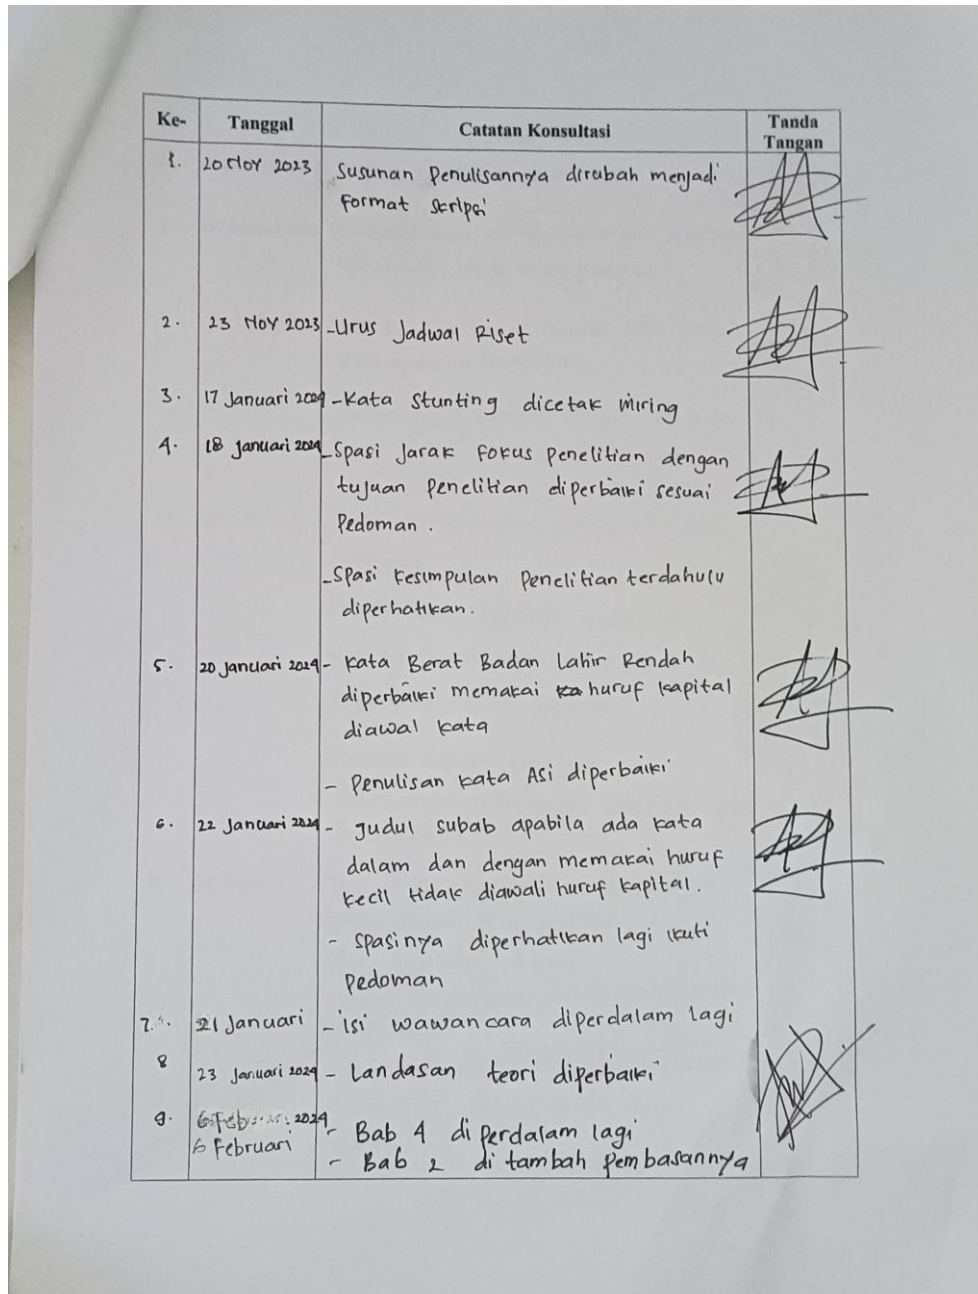 Ke- Tanggal Catatan Konsultasi Tanda Tangan
1. 20 Nov 2023 Susunan Penulisannya dirubah menjadi
Format Skripsi
2. 23 Nov 2023 -Urus Jadwal Riset
3. 17 Januari 2024 -Kata Stunting dicetak miring
4. 18 Januari 2024 -Spasi Jarak Fokus Penelitian dengan
tujuan Penelitian diperbaiki sesuai
Pedoman.
-Spasi Kesimpulan Penelitian terdahulu
diperhatikan.
5. 20 Januari 2024 - Kata Berat Badan Lahir Rendah
diperbaiki memakai huruf kapital
diawal kata
- Penulisan kata Asi diperbaiki
6. 22 Januari 2024 - Judul subab apabila ada kata
dalam dan dengan memakai huruf
kecil tidak diawali huruf kapital.
- Spasinya diperhatikan lagi ikuti
Pedoman
7. 21 Januari - isi wawancara diperdalam lagi
8 23 Januari 2024 - Landasan teori diperbaiki
9. 6 Februari 2024
6 Februari - Bab 4 di perdalam lagi
- Bab 2 di tambah Pembasannya